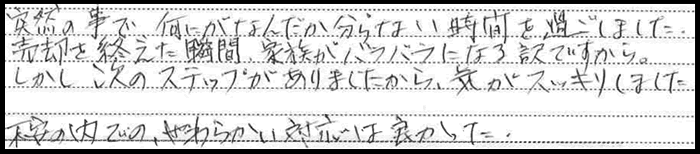 突然の事で、何にがなんだか分らない時間を過ごしました.
売却を終えた瞬間、家族がバラバラになる訳ですから。
しかし次のステップがありましたから、気がスッキリしました
不安の内での、やわらかい対応は良かった.